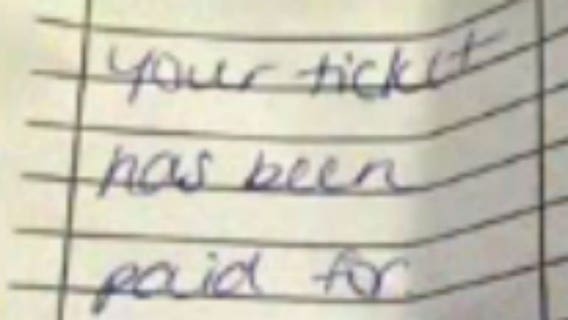 your ticket
has been
paid for